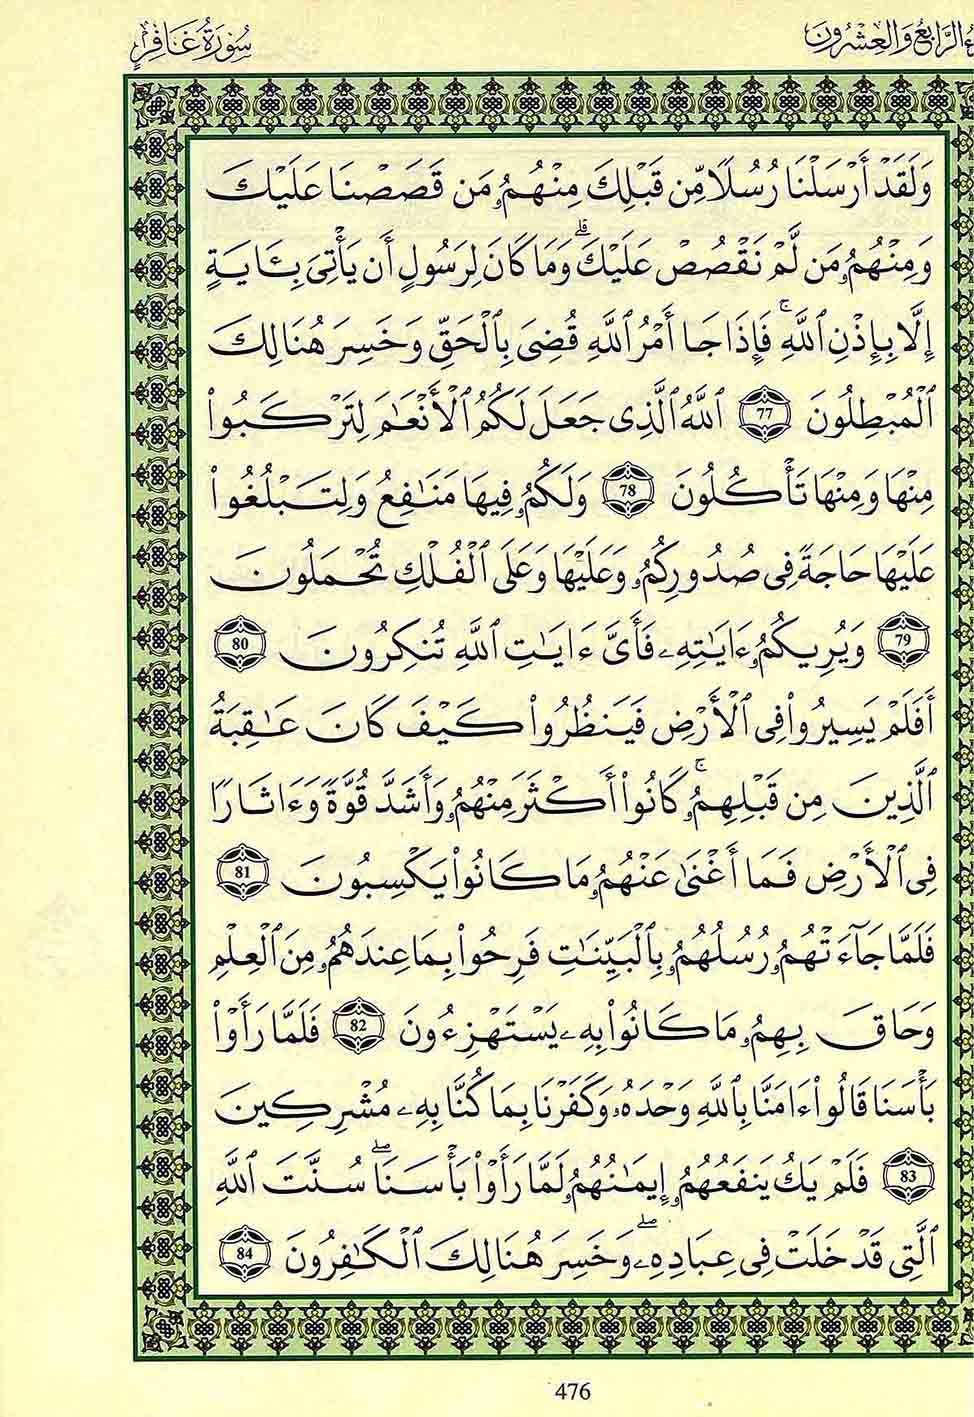 ءالرَّابِعُ وَالْعِشْرُونَ
سُورَةُ غَافِرٍ
وَلَقَدْ أَرْسَلْنَا رُسُلًا مِّن قَبْلِكَ مِنْهُمُۥ مَن قَصَصْنَا عَلَيْكَ
وَمِنْهُمُۥ مَن لَّمْ نَقْصُصْ عَلَيْكَ ۗ وَمَا كَانَ لِرَسُولٍ أَن يَأْتِىَ بِـَٔايَةٍ
إِلَّا بِإِذْنِ ٱللَّهِ ۚ فَإِذَا جَا أَمْرُ ٱللَّهِ قُضِىَ بِٱلْحَقِّ وَخَسِرَ هُنَالِكَ
ٱلْمُبْطِلُونَ 77 ٱللَّهُ ٱلَّذِى جَعَلَ لَكُمُ ٱلْأَنْعَـٰمَ لِتَرْكَبُوا۟
مِنْهَا وَمِنْهَا تَأْكُلُونَ 78 وَلَكُمُۥ فِيهَا مَنَـٰفِعُ وَلِتَبْلُغُوا۟
عَلَيْهَا حَاجَةً فِى صُدُورِكُمُۥ وَعَلَيْهَا وَعَلَى ٱلْفُلْكِ تُحْمَلُونَ
79 وَيُرِيكُمُۥ ءَايَـٰتِهِۦ فَأَىَّ ءَايَـٰتِ ٱللَّهِ تُنكِرُونَ 80
أَفَلَمْ يَسِيرُوا۟ فِى ٱلْأَرْضِ فَيَنظُرُوا۟ كَيْفَ كَانَ عَـٰقِبَةُ
ٱلَّذِينَ مِن قَبْلِهِمُۥ ۚ كَانُوا۟ أَكْثَرَ مِنْهُمُۥ وَأَشَدَّ قُوَّةً وَءَاثَارًا
فِى ٱلْأَرْضِ فَمَا أَغْنَىٰ عَنْهُمُۥ مَا كَانُوا۟ يَكْسِبُونَ 81
فَلَمَّا جَآءَتْهُمُۥ رُسُلُهُمُۥ بِٱلْبَيِّنَـٰتِ فَرِحُوا۟ بِمَا عِندَهُمُۥ مِنَ ٱلْعِلْمِ
وَحَاقَ بِهِمُۥ مَا كَانُوا۟ بِهِۦ يَسْتَهْزِءُونَ 82 فَلَمَّا رَأَوْا۟
بَأْسَنَا قَالُوا۟ ءَامَنَّا بِٱللَّهِ وَحْدَهُۥ وَكَفَرْنَا بِمَا كُنَّا بِهِۦ مُشْرِكِينَ
83 فَلَمْ يَكُ يَنفَعُهُمُۥ إِيمَـٰنُهُمُۥ لَمَّا رَأَوْا۟ بَأْسَنَا ۖ سُنَّتَ ٱللَّهِ
ٱلَّتِى قَدْ خَلَتْ فِى عِبَادِهِۦ ۖ وَخَسِرَ هُنَالِكَ ٱلْكَـٰفِرُونَ 84
476